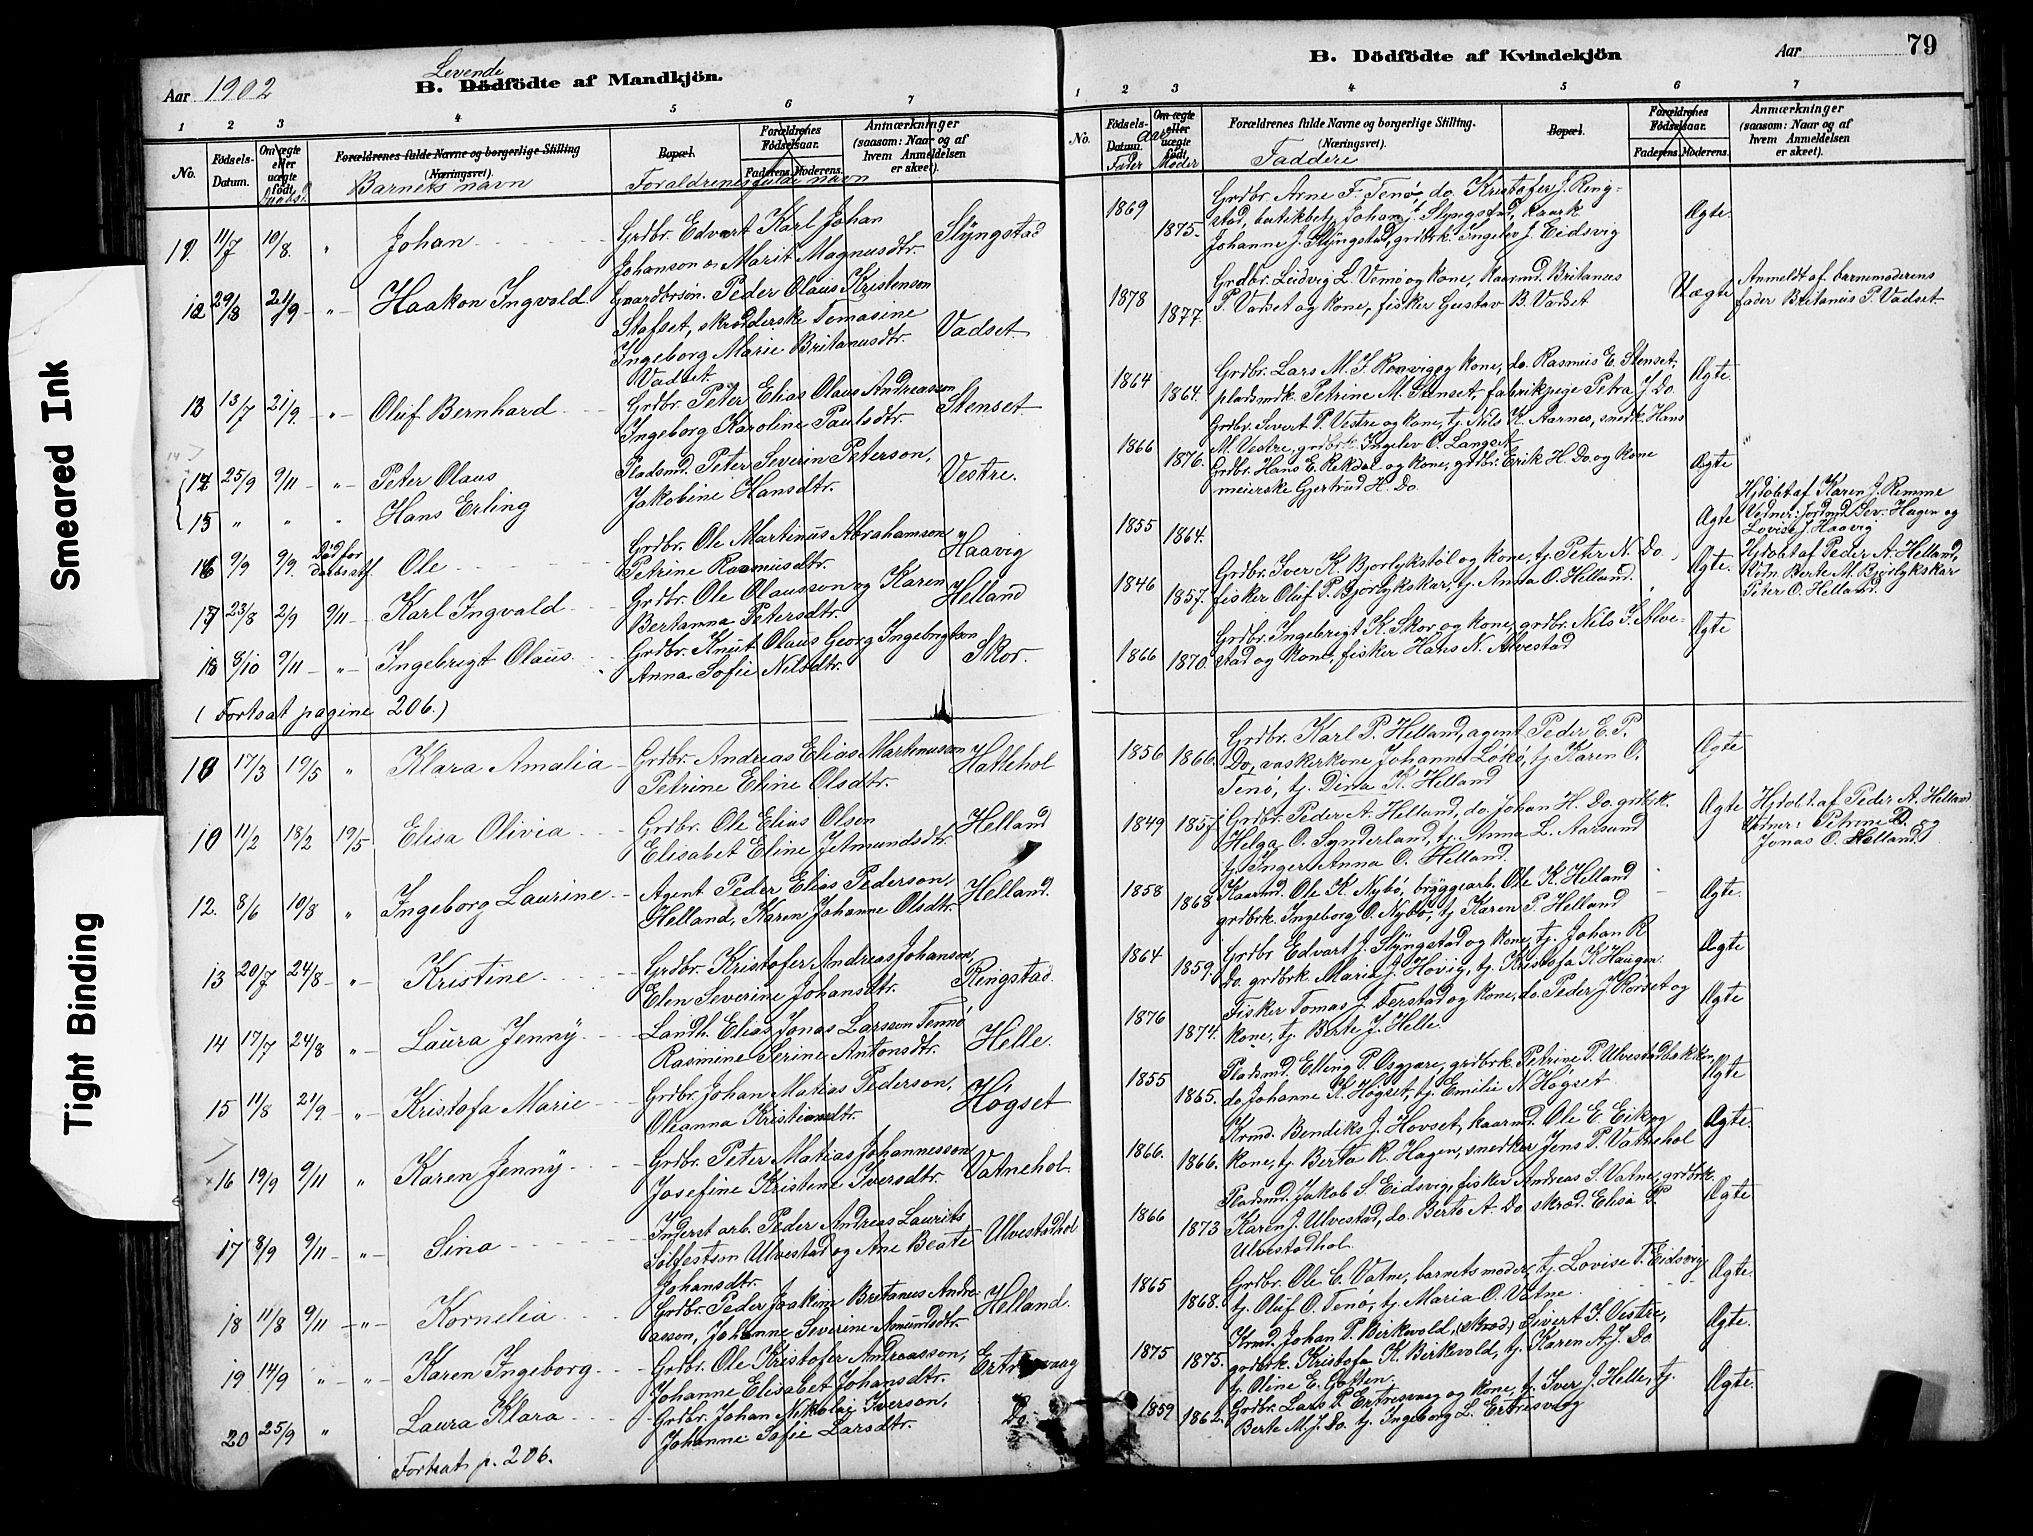 Smeared Ink
Tight Binding
Aar 1902
Levende
B. Dödfödte af Mandkjön.
1 2 3 4 5 6 7
No.
Födsels-
Datum.
Om ægte
eller
uægte
född.
Forældrenes fulde Navne og borgerlige Stilling
(Næringsvei).
Barnets navn
Bopæl.
Forældrenes fulde navn
Forældrenes
Födselsaar.
Faderens. Moderens.
Anmærkninger
(saasom: Naar og af
hvem Anmeldelsen
er skeet).
11. 11/7 10/8. " Johan
Grdbr. Edvart Karl Johan
Johanson og Marit Magnusdtr.
Slyngstad
12 29/8 21/9 - " - Haakon Ingvald
Gaardbrsøn. Peder Olaus Kristenson
Stafset, skrædderske Tomasine
Ingeborg Marie Britanusdtr.
Vadset
Vadset.
13 13/7 21/9. - " - Oluf Bernhard
Grdbr. Peter Elias Olaus Andreasson
Ingeborg Karoline Paulsdtr.
Stenset
14 25/9 9/11 - " - Peter Olaus
15 " " " Hans Erling
Pladsmd. Peter Severin Peterson,
Jakobine Hansdtr.
Vestre.
16 9/9 9/9. Död for
Ole
Grdbr. Ole Martinus Abrahamson
Petrine Rasmusdtr.
Haavig
17 23/8 2/9 9/11 - Karl Ingvald
Grdbr. Ole Olausson og Karen
Bertanna Petersdtr.
Helland
18 8/10 9/11 - " - Ingebrigt Olaus
Grdbr. Knut Olaus Georg Ingebrigtson
Anna Sofie Nilsdtr.
Skor.
( Fortsat pagine 206.)
10 17/3 19/5 " Klara Amalia
Grdbr. Andreas Elias Martinusson
Petrine Eline Olsdtr.
Hattehol
10 11/2 18/2 19/5 - Elisa Olivia
Grdbr. Ole Elias Olson
Elisabet Eline J Amundsdtr.
Helland
12. 8/6 10/8 " Ingeborg Laurine
Agent Peder Elias Pederson,
Helland, Karen Johanne Olsdtr.
Helland.
13 20/7 24/8 - " - Kristine
Grdbr. Kristofer Andreas Johanson,
Elen Severine Johansdtr.
Ringstad.
14 17/7 24/8 " - Laura Jenny
Landh. Elias Jonas Larsson Tennö
Rasmine Serine Antonsdtr.
Helle.
15 11/8 21/9 - " Kristofa Marie
Grdbr. Johan Matias Pederson,
Oleanna Kristiansdtr.
Högset
16 19/9 9/11 " Karen Jenny
Grdbr. Peter Matias Johannesson
Josefine Kristene Iversdtr.
Vatnehol.
17 8/9 9/11 - " - Sina
Inderst arb. Peder Andreas Laurits
Solfestson Ulvestad og Ane Beate
Johansdtr.
Ulvestadhol
18 11/8 9/11 - " - Kornelia
Grdbr. Peder Joakim Britanus Andre-
asson, Johanne Severine Amundsdtr.
Helland.
19 14/9 " - " - Karen Ingeborg
Grdbr. Ole Kristofer Andreasson,
Johanne Elisabet Johansdtr.
20 25/9 " Laura Klara
Grdbr. Johan Nikolai Iverson,
Johanne Sofie Larsdtr.
Do.
Fortsat p. 206.
B. Dödfödte af Kvindekjön
Aar
79
1 2 3 4 5 6 7
No.
Födsels-
Datum.
Om ægte
eller
uægte
född.
aar
Fader Moder
Forældrenes fulde Navne og borgerlige Stilling.
(Næringsvei).
Faddere
Bopæl.
Forældrenes
Födselsaar.
Faderens. Moderens.
Anmærkninger
(saasom: Naar og af
hvem Anmeldelsen
er skeet).
1869 1875.
Grdbr. Arne F. Tenø, do. Kristofer J. Ring-
stad, butikbetj. Johan J. Slyngstad, kaark.
Johanne J. Slyngstad, grdbrk. Ingelev J. Eidsvig
Ægte.
1878 1877.
Grdbr. Leidvig L. Vemø og kone, kaarmd. Britanus
P. Vadset og kone, fisker Gustav B. Vadset
Uægte
Anmeldt af barnemoderens
fader Britanus P. Vadset
1864 1864.
Grdbr. Lars M. F. Rønvig og kone, do. Rasmus E. Stenset,
pladsmdk. Petrine M. Stenset, fabrikpige Petra J. Do.
Ægte
1866 1876.
Grdbr. Sivert P. Vestre og kone, tj. Nils K. Aarnes, snedk. Hans
M. Vestre, grdbrk. Ingelev O. Langset
Grdbr. Hans E. Rekdal og kone, grdbr. Erik H. Do. og kone
meierske Gjertrud H. Do.
Ægte
1855 1864.
Ægte
Hjdöbt af Karen J. Remme
Vidner: Jordmd Sev. Hagen og
Lovise J. Haavig
1846 1857.
Grdbr. Iver K. Bjorlykstöl og kone, tj. Peter N. Do.
fisker Oluf P. Bjorlykskar, tj. Anna O. Helland.
Ægte.
Hjdöbt af Peder A. Helland,
Vidn. Berte M. Bjorlykskar
Peter O. Helland.
1866 1870.
Grdbr. Ingebrigt K. Skor og kone, grdbr. Nils S. Alve-
stad og kone, fisker Hans N. Alvestad
Ægte
1856 1866.
Grdbr. Karl P. Helland, agent Peder E. P.
Do, vaskerkone Johanne Lökö, tj. Karen O.
Tenö, tj. Dina K. Helland
Ægte
1849 1857
Grdbr. Peder A. Helland, do. Johan H. Do. grdbrk.
Helga O. Synderland, tj. Anna L. Aarsund
tj. Inger Anna O. Helland.
Ægte
Hjdöbt af Peder A. Helland
Vidner: Petrine D. og
Jonas O. Helland
1858 1868
Kaarmd. Ole K. Nybö, bryggearb. Ole K. Helland
grdbrk. Ingeborg O. Nybö, tj Karen P. Helland
Ægte.
1864 1859.
Grdbr Edvart J. Slyngstad og kone, tj. Johan R
Do. grdbrk. Maria J. Hovig, tj. Kristofa K Haugen.
Ægte
1876 1874.
Fisker Tomas J. Terstad og kone, do. Peder J. Rorset og
kone, tj. Berte J. Helle.
Ægte
1855 1865.
Pladsmd. Elling P. Osgjare, grdbrk. Petrine P. Ulvestadbakken,
do. Johanne K. Högset, tj. Emilie N. Högset
Ægte
1866. 1866.
Krmd. Bendiks J. Hovset, kaarmd. Ole E. Eik og
kone, tj. Berta R. Hagen, snedker Jens P. Vatnehol
Ægte.
1866 1873
Pladsmd. Jakob S. Eidsvig, fisker Andreas S. Vatne, grdbrk.
Karen J. Ulvestad, do. Berte A. Do. skræd. Elisa P.
Ulvestadhol.
Ægte
1865 1868.
Grdbr. Ole C. Vatne, barnets moder, tj. Lovise T. Eidsvig
tj. Oluf O. Tenö, tj. Maria O. Vatne.
Ægte.
1875 1875.
Krmd. Johan P. Birkevold, (skræd.) Sivert S. Vestre,
grdbrk. Kristofa K. Birkevold, tj. Karen A. J. Do.
tj. Oline E. Gjøsen.
Ægte.
1859 1862.
Grdbr. Lars P. Ertresvaag og kone, tj. Iver J. Helle, tj.
Berte M. J. Do. tj. Ingeborg L. Ertresvaag
Ægte.